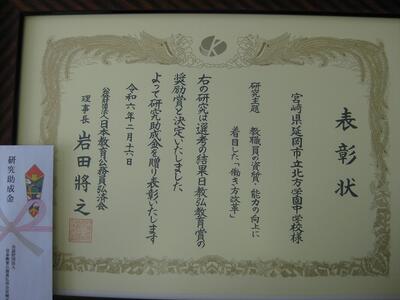 表彰状
宮崎県延岡市立北方学園中学校様
研究主題　教職員の資質・能力の向上に
着目した、「働き方改革」
右の研究は選考の結果日教弘教育賞の
奨励賞と決定いたしました
よって研究助成金を贈り表彰いたします
令和六年二月十六日
公益財団法人日本教育公務員弘済会
理事長　岩田將之
研究助成金